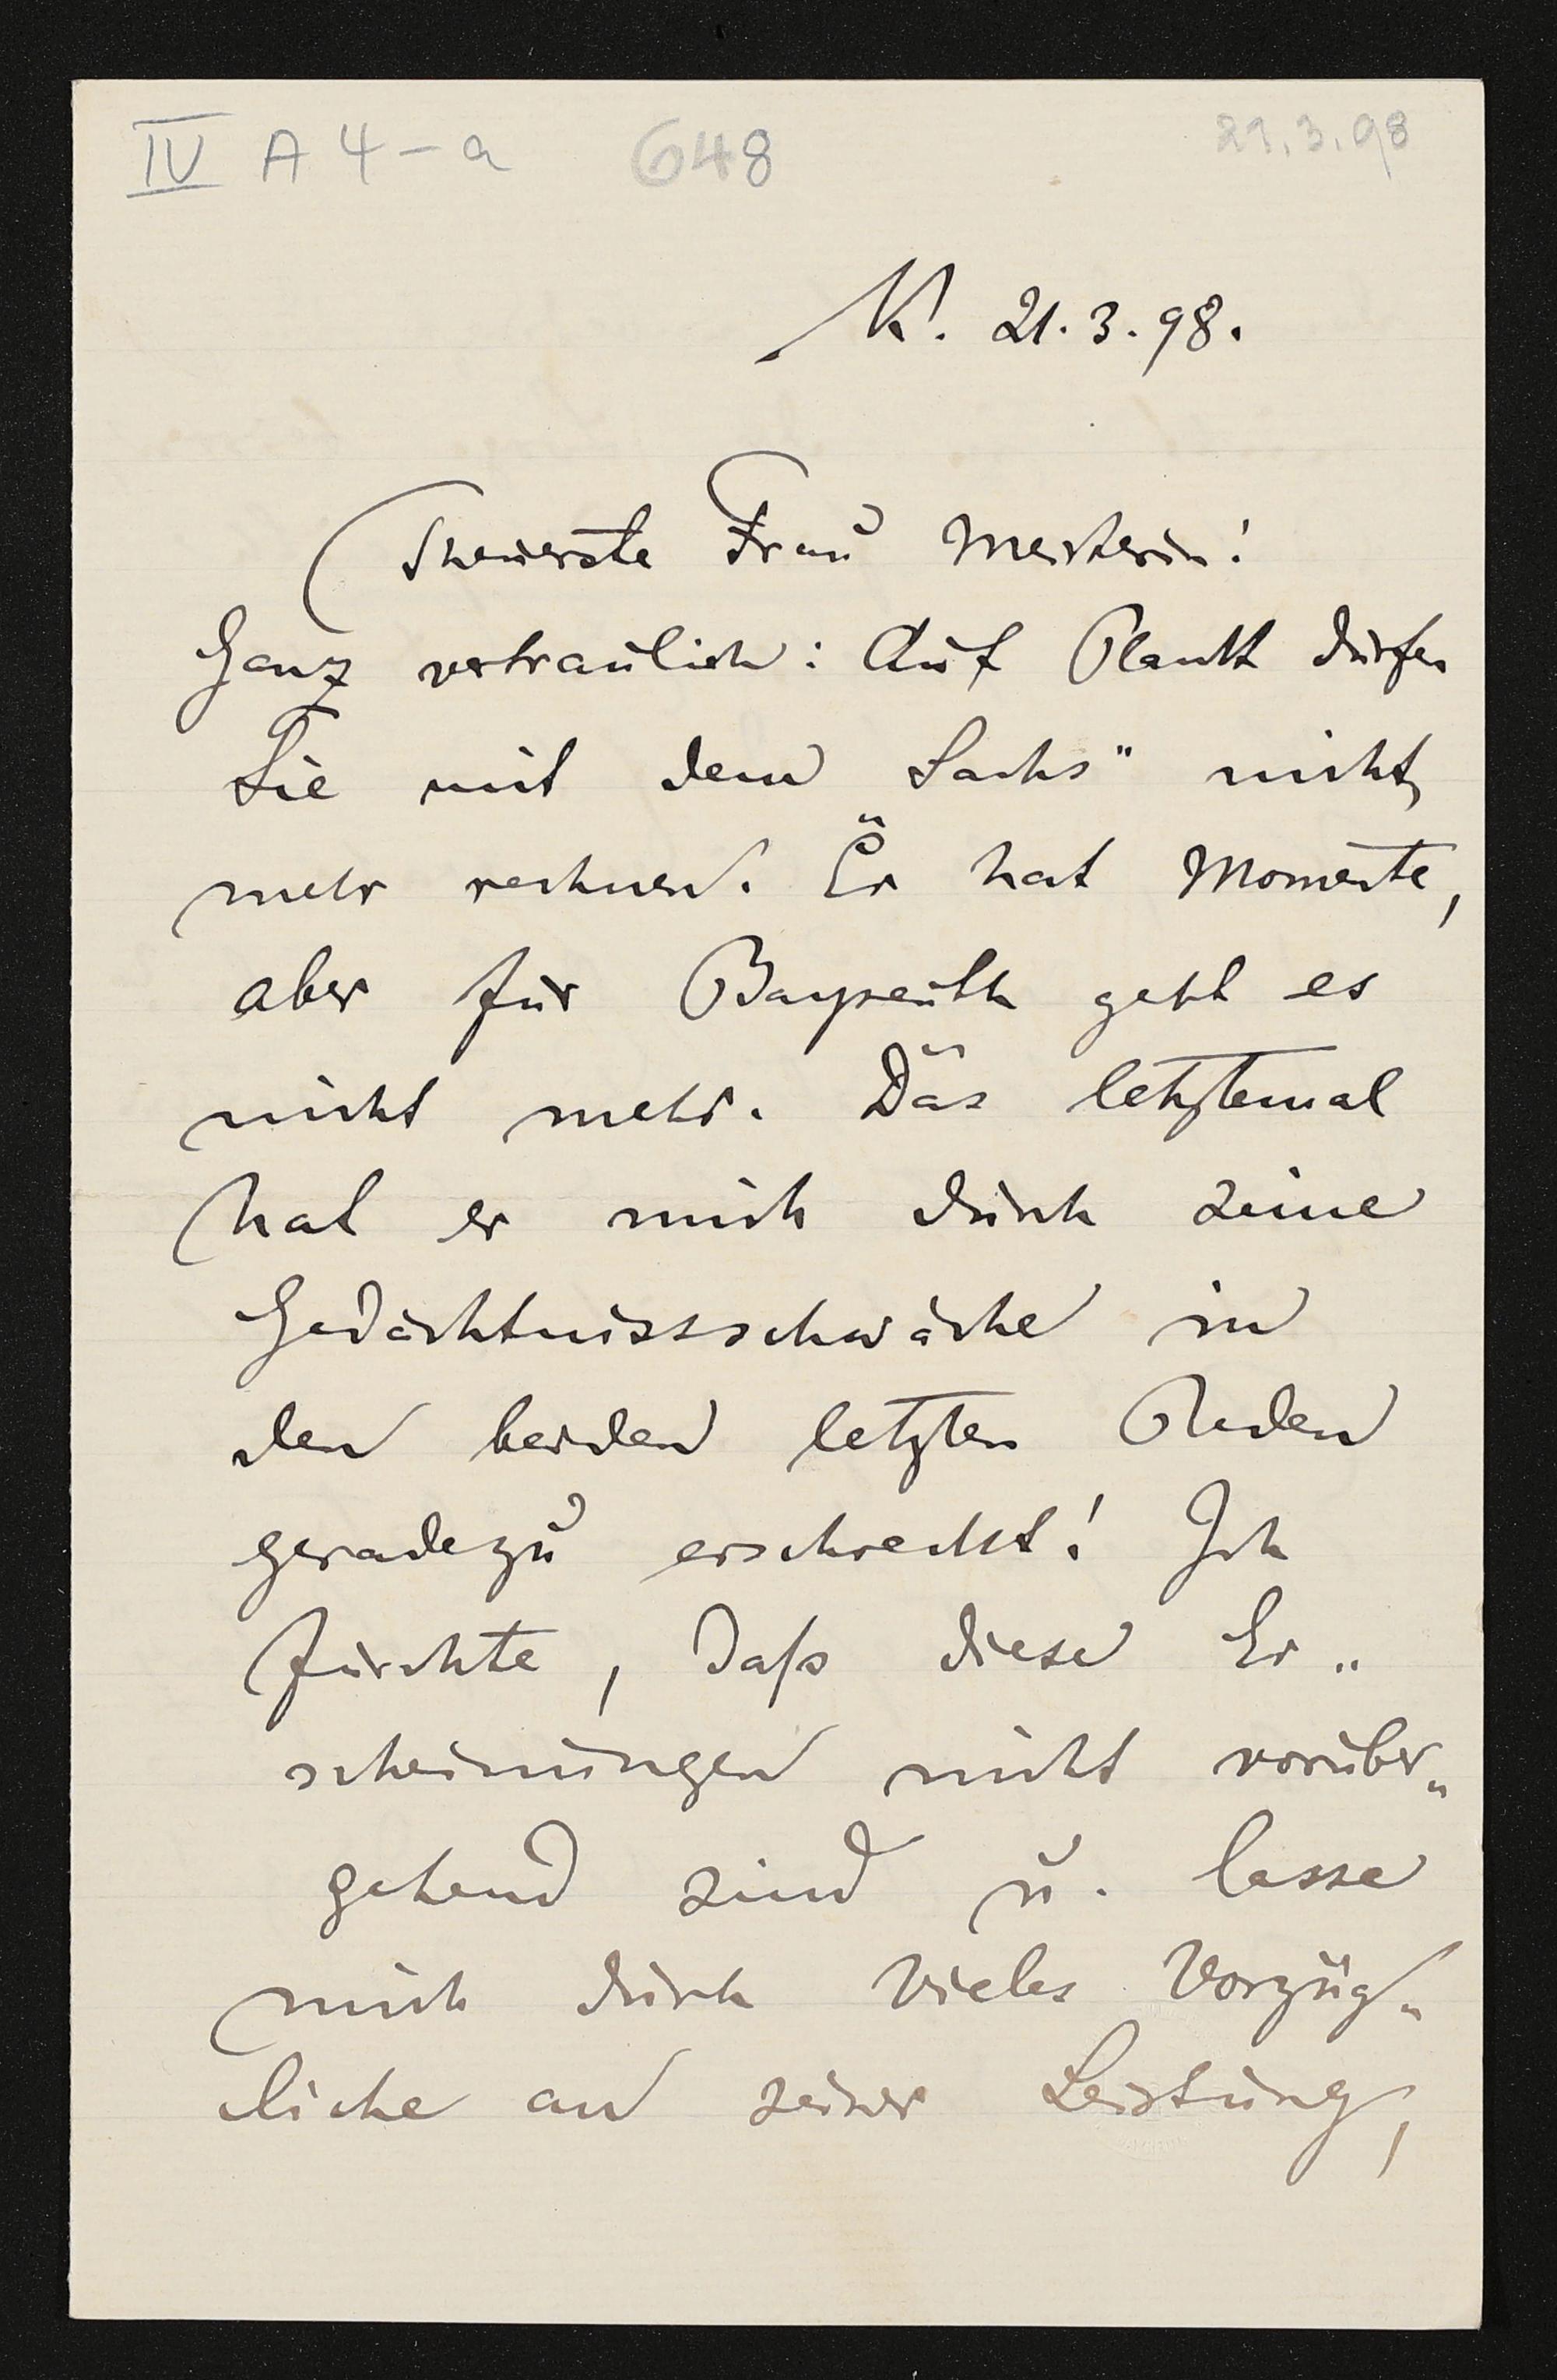 IV A 4-a 648 21.3.98
K. 21.3.98.
Theuerste Frau Meisterin!
Ganz vertraulich: Auf Plank dürfen
Sie mit dem „Sachs" nicht
mehr rechnen. Er hat Momente,
aber für Bayreuth geht es
nicht mehr. Das letztemal
hat er mich durch seine
Gedächtnissschwäche in
den beiden letzten Reden
geradezu erschreckt! Ich
fürchte, daß diese Er„
scheinungen nicht vorüber„
gehend sind u. lasse
mich durch vieles Vorzüg„
liche an seiner Leistung,